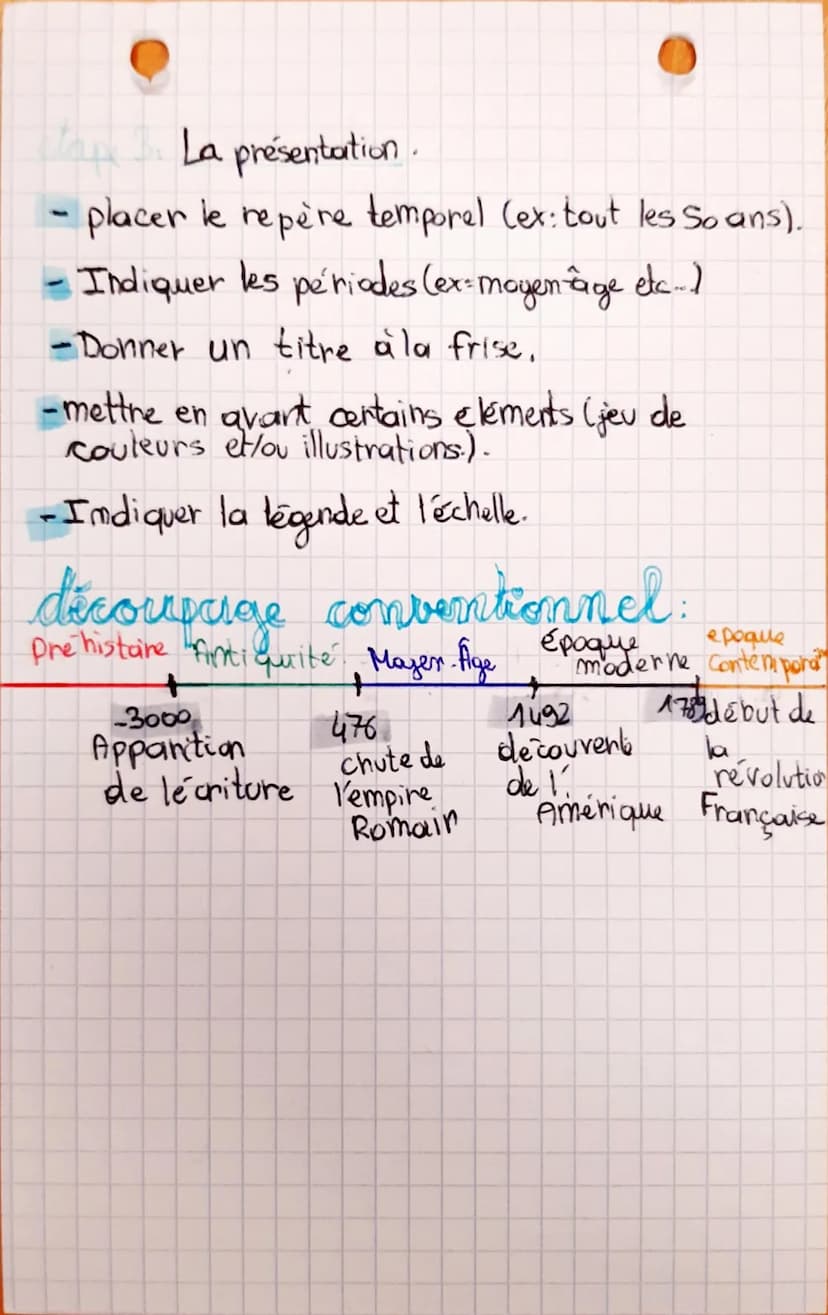 étape 3.
La présentation.
- placer le repère temporel (ex: tout les 50 ans).
- Indiquer les périodes (ex= moyen-âge etc...)
- Donner un titre à la frise.
- mettre en avant certains éléments (jeu de
couleurs et/ou illustrations.).
- Indiquer la légende et l'échelle.
découpage conventionnel:
Préhistoire Antiquité Moyen-Âge Époque moderne époque Contemporain
-3000 476 1492 1789 début de
Apparition chute de découverte la
de l'écriture l'empire de l' révolution
Romain Amérique Française